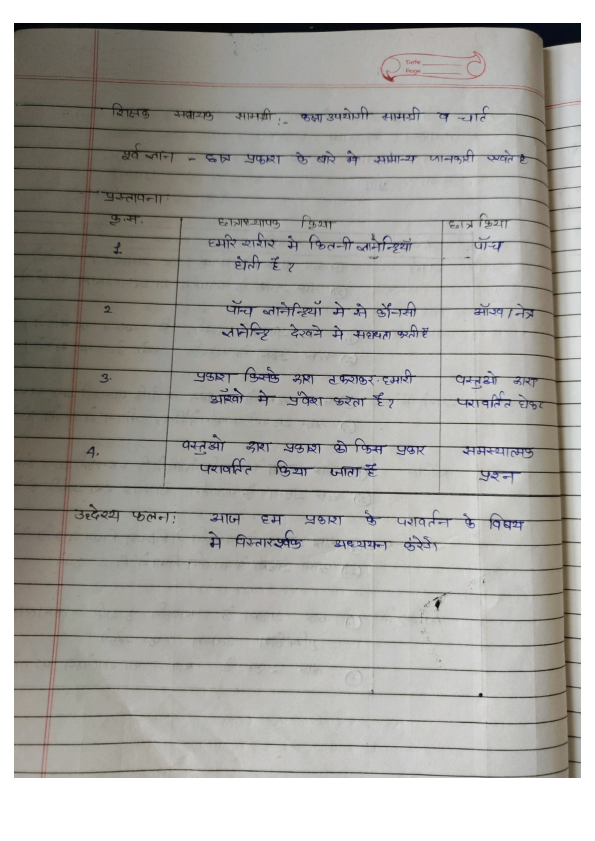 Date
Page
शिक्षक सहायक सामग्री :- कक्षा उपयोगी सामग्री व चार्ट
पूर्व ज्ञान - छात्र प्रकाश के बारे मे सामान्य जानकारी रखते है
प्रस्तावना:
क्र.स. छात्राध्यापक क्रिया छात्र क्रिया
1 हमारे शरीर मे कितनी ज्ञानेन्द्रियाँ पाँच
होती है ?
2 पाँच ज्ञानेन्द्रियाँ मे से कौनसी आँख / नेत्र
ज्ञानेन्द्रि देखने मे सहायता करती है
3. प्रकाश किसके द्वारा टकराकर हमारी वस्तुओ द्वारा
आँखो मे प्रवेश करता है ? परावर्तित होकर
4. वस्तुओ द्वारा प्रकाश को किस प्रकार समस्यात्मक
परावर्तित किया जाता है प्रश्न
उद्देश्य कथन : आज हम प्रकाश के परावर्तन के विषय
मे विस्तारपूर्वक अध्ययन करेंगे।